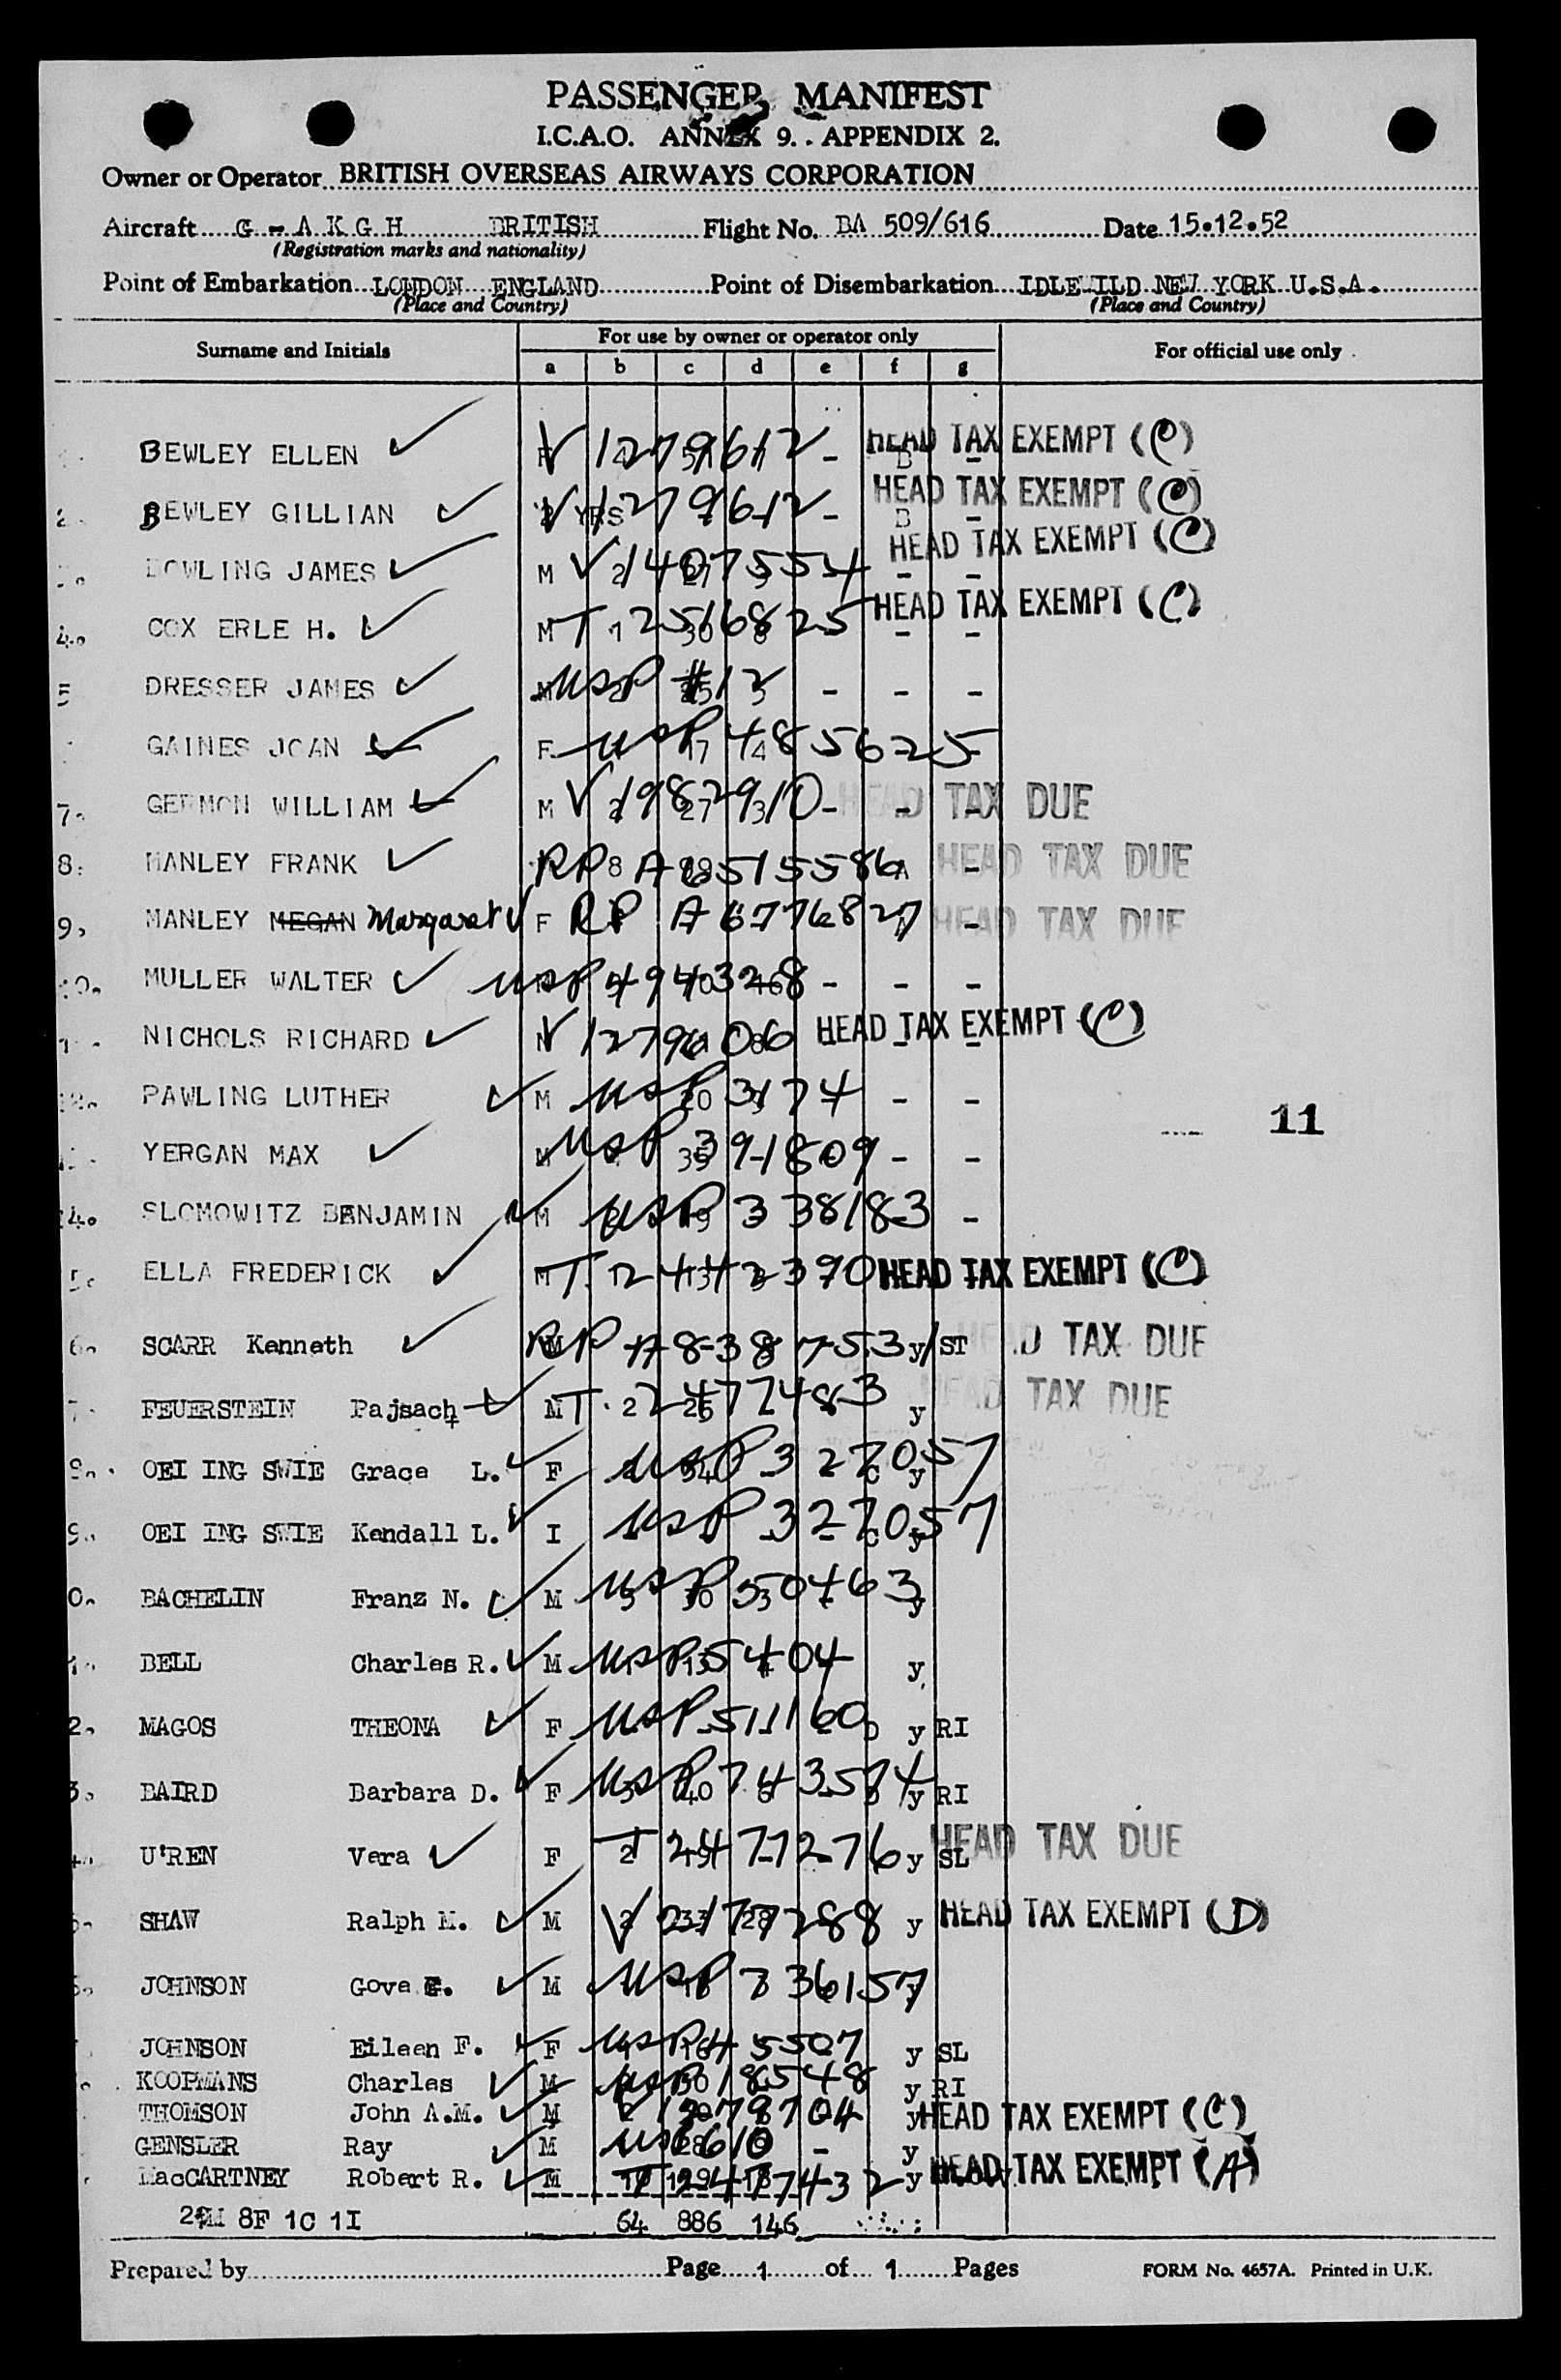 PASSENGER MANIFEST
I.C.A.O. ANNEX 9. . APPENDIX 2.
Owner or Operator BRITISH OVERSEAS AIRWAYS CORPORATION
Aircraft G - A K G H BRITISH Flight No. BA 509/616 Date 15.12.52
(Registration marks and nationality)
Point of Embarkation LONDON ENGLAND Point of Disembarkation IDLEWILD NEW YORK U.S.A.
(Place and Country) (Place and Country)
Surname and Initials For use by owner or operator only For official use only
a b c d e f g
BEWLEY ELLEN V 1279612 - HEAD TAX EXEMPT (C)
2. BEWLEY GILLIAN V 1279612 - HEAD TAX EXEMPT (C)
DOWLING JAMES M V 1407554 - - HEAD TAX EXEMPT (C)
4. COX ERLE H. M T 2516825 - - HEAD TAX EXEMPT (C)
5 DRESSER JAMES M USP #12 - - -
GAINES JOAN F USP 485625
7. GERMON WILLIAM M V 1982910 - - HEAD TAX DUE
8. MANLEY FRANK RP A 6515586 - HEAD TAX DUE
9. MANLEY MEGAN Margaret F RP A 6776827 - HEAD TAX DUE
10. MULLER WALTER USP 494328 - - -
NICHOLS RICHARD V 1279606 - - HEAD TAX EXEMPT (C)
12. PAWLING LUTHER M USP 3174 - -
11
YERGAN MAX M USP 391809 - -
14. SLOMOWITZ BENJAMIN M USP 338183 -
5. ELLA FREDERICK M T 2442390 HEAD TAX EXEMPT (C)
6. SCARR Kenneth M RP A 8387753 y/ST HEAD TAX DUE
7. FEUERSTEIN Pajsach M T 2477483 y HEAD TAX DUE
OEI ING SWIE Grace L. F USP 327057 y
9. OEI ING SWIE Kendall L. I USP 327057 y
0. BACHELIN Franz N. M USP 550463 y
1. BELL Charles R. M USP 5404 y
2. MAGOS THEONA F USP 511160 y RI
3. BAIRD Barbara D. F USP 743574 y RI
U'REN Vera F T 2477276 y SL HEAD TAX DUE
SHAW Ralph M. M V 2177288 y HEAD TAX EXEMPT (D)
JOHNSON Gove M USP 736157
JOHNSON Eileen F. F USP 45507 y SL
KOOPMANS Charles M USP 18548 y RI
THOMSON John A.M. M V 1278704 y HEAD TAX EXEMPT (C)
GENSLER Ray M USP 6610 - y
MacCARTNEY Robert R. M T 2477432 y HEAD TAX EXEMPT (A)
8F 1C 1I 64 886 146
Prepared by Page 1 of 1 Pages FORM No. 4657A. Printed in U.K.